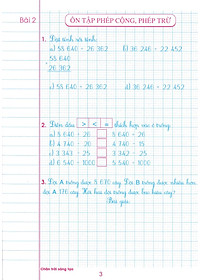 Bài 2
ÔN TẬP PHÉP CỘNG, PHÉP TRỪ
1. Đặt tính rồi tính:
a) 55 640 + 26 362 b) 36 246 + 22 452
55 640
26 362
c) 55 640 - 26 362 d) 36 246 - 22 452
2. Điền dấu > < = thích hợp vào ô trống.
a) 5 640 + 26 5 640 - 26
b) 4 740 - 26 4 740 - 15
c) 3 343 - 25 3 343 + 25
d) 6 540 - 1000 5 540 + 1000
3. Đội A trồng được 5 670 cây. Đội B trồng được nhiều hơn
đội A 176 cây. Hỏi hai đội trồng được bao nhiêu cây?
Bài giải
Chân trời sáng tạo
3